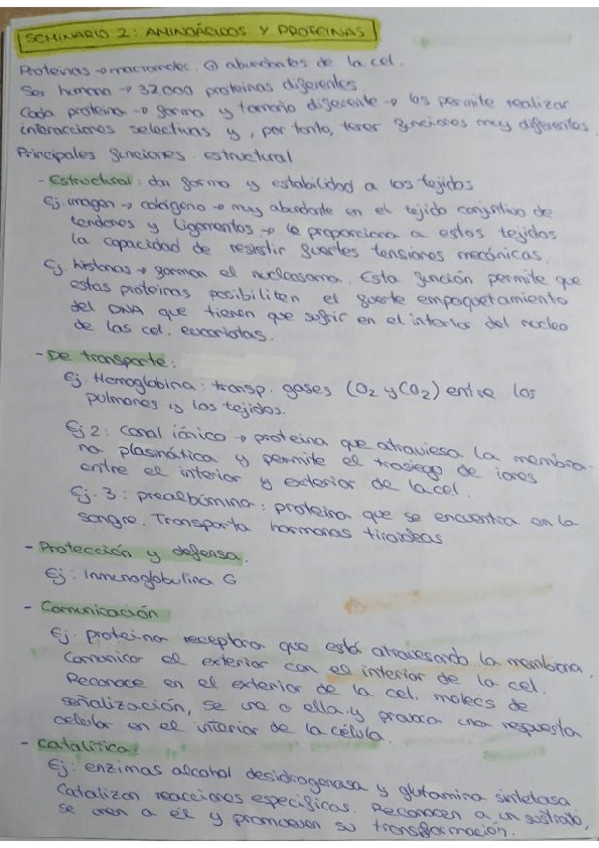 SEMINARIO 2: AMINOÁCIDOS Y PROTEINAS
Proteínas → macromolec. ⊕ abundantes de la cel.
Ser humano → 32.000 proteinas diferentes.
Cada proteína → forma y tamaño diferente → les permite realizar
interacciones selectivas y, por tanto, tener funciones muy diferentes.
Principales funciones: estructural
- Estructural: dan forma y estabilidad a los tejidos
Ej. imagen → colágeno → muy abundante en el tejido conjuntivo de
tendones y ligamentos → le proporciona a estos tejidos
la capacidad de resistir fuertes tensiones mecánicas.
Ej. histonas → forman el nucleosoma. Esta función permite que
estas proteínas posibiliten el fuerte empaquetamiento
del DNA que tienen que sufrir en el interior del nucleo
de las cel. eucariotas.
- De transporte:
Ej. Hemoglobina: transp. gases (O2 y CO2) entre los
pulmones y los tejidos.
Ej 2: Canal iónico → proteína que atraviesa la membra-
na plasmática y permite el trasiego de iones
entre el interior y exterior de la cel.
Ej. 3: prealbúmina: proteína que se encuentra en la
sangre. Transporta hormonas tiroideas
- Protección y defensa.
Ej: Inmunoglobulina G
- Comunicación
Ej. proteína receptora que está atravesando la membrana.
Comunica el exterior con el interior de la cel.
Reconoce en el exterior de la cel. molecs de
señalización, se une a ella y provoca una respuesta
celular en el interior de la célula.
- Catalítica:
Ej: enzimas alcohol desidrogenasa y glutamina sintetasa
Catalizan reacciones específicas. Reconocen a un sustrato,
se unen a él y promueven su transformación.